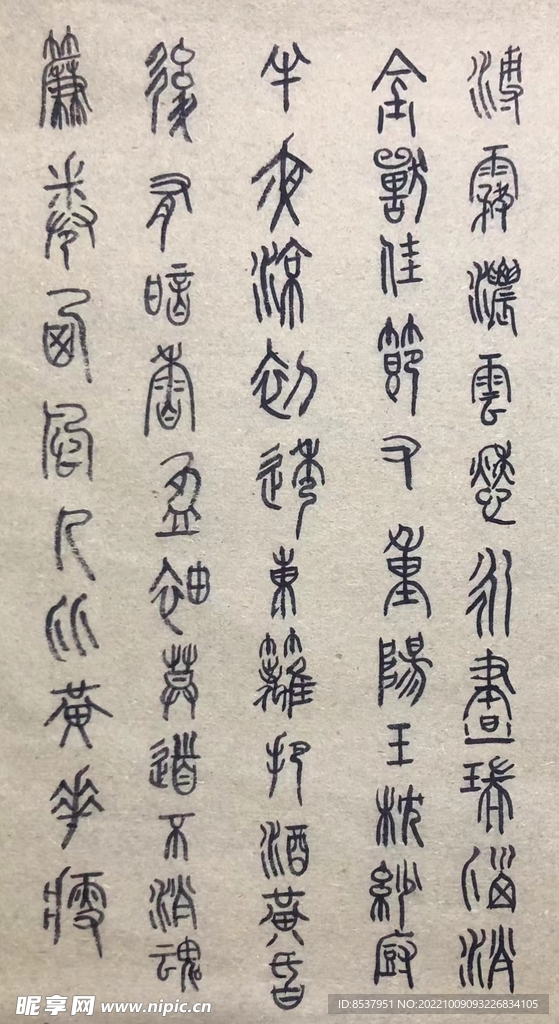 溥霧濃雲愁永晝瑞腦消
金獸佳節又重陽玉枕紗廚
半夜涼初透東籬把酒黃昏
後有暗香盈袖莫道不消魂
簾卷西風人比黃花瘦
昵享网 www.nipic.cn
ID:8537951 NO:20221009093226834105